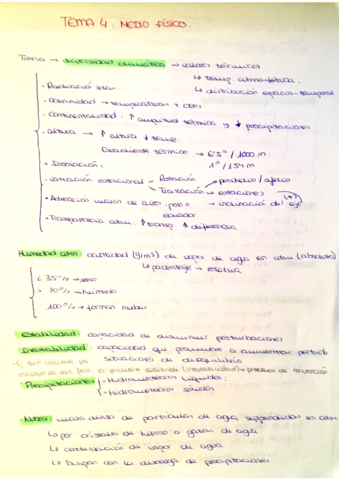 TEMA 4: MEDIO FÍSICO.
Tierra → diversidad climática → valores térmicos
↳ temp. atmosférica.
↳ distribución espacio-temporal
- Radiació solar.
- Oceanidad → temperaturas + ctes
- Continentalidad: ↑ amplitud térmica y ↓ precipitaciones
- Altura → ↑ altura ↓ temp.
Gradiente térmico → 6'5º / 1000 m.
- Insolación: 1º / 154 m
- Variación estacional - Rotación → perihelio / afelio
Traslación → estaciones (+)
- Advección masas de aire: polo inclinación del eje
ecuador
- Transparencia atm: ↑ transp ↑ diferencia
Humedad atm: cantidad (g/m³) de vapor de agua en atm (absoluta)
↳ porcentaje → relativa
< 35% → seco
> 70% → húmedo
100% → forman nubes
Estabilidad: capacidad de disminuir perturbaciones
Inestabilidad: capacidad que promueve a aumentar perturb
situaciones de desequilibrio
Precipitaciones - Hidrometeoros líquidos:
- Hidrometeoros sólidos
Nubes: masa densa de partículas de agua suspendidas en atm
↳ por cristales de hielo o gotas de agua
↳ condensación de vapor de agua
↳ Disipan con la descarga de precipitaciones